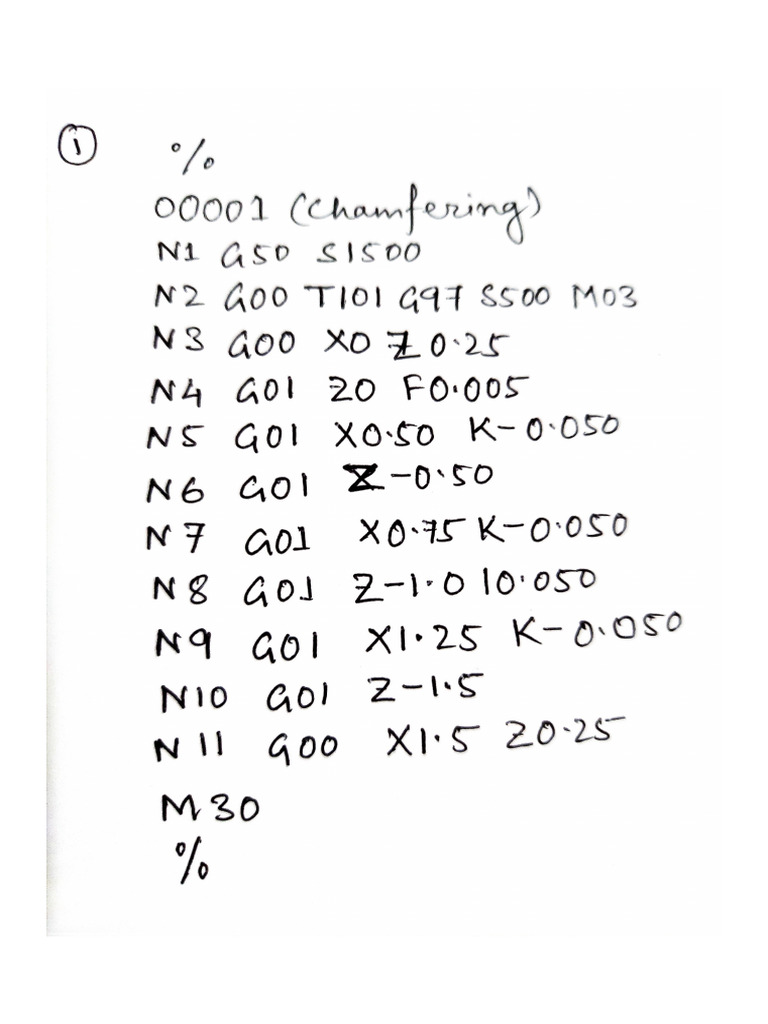 ①
%
O0001 (Chamfering)
N1 G50 S1500
N2 G00 T101 G97 S500 M03
N3 G00 X0 Z0.25
N4 G01 Z0 F0.005
N5 G01 X0.50 K-0.050
N6 G01 Z-0.50
N7 G01 X0.75 K-0.050
N8 G01 Z-1.0 I0.050
N9 G01 X1.25 K-0.050
N10 G01 Z-1.5
N11 G00 X1.5 Z0.25
M30
%